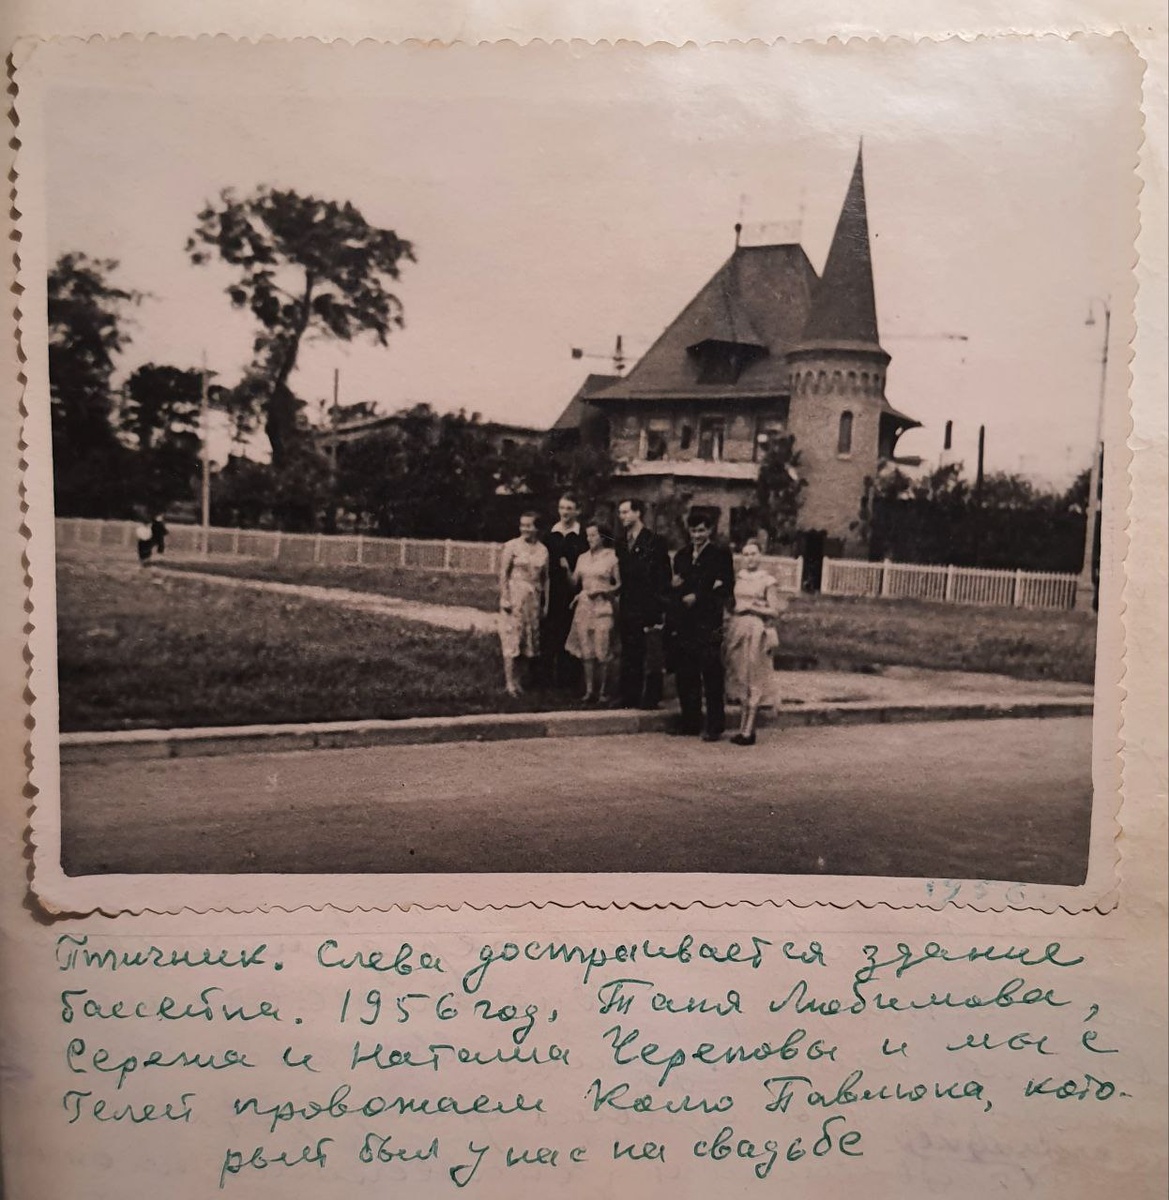 1956.
Птичник. Слева достраивается здание
бассейна. 1956 год, Таня Любимова,
Сережа и Наташа Череповы и мы с
Гелей провожаем Колю Павлюка, кото-
рый был у нас на свадьбе